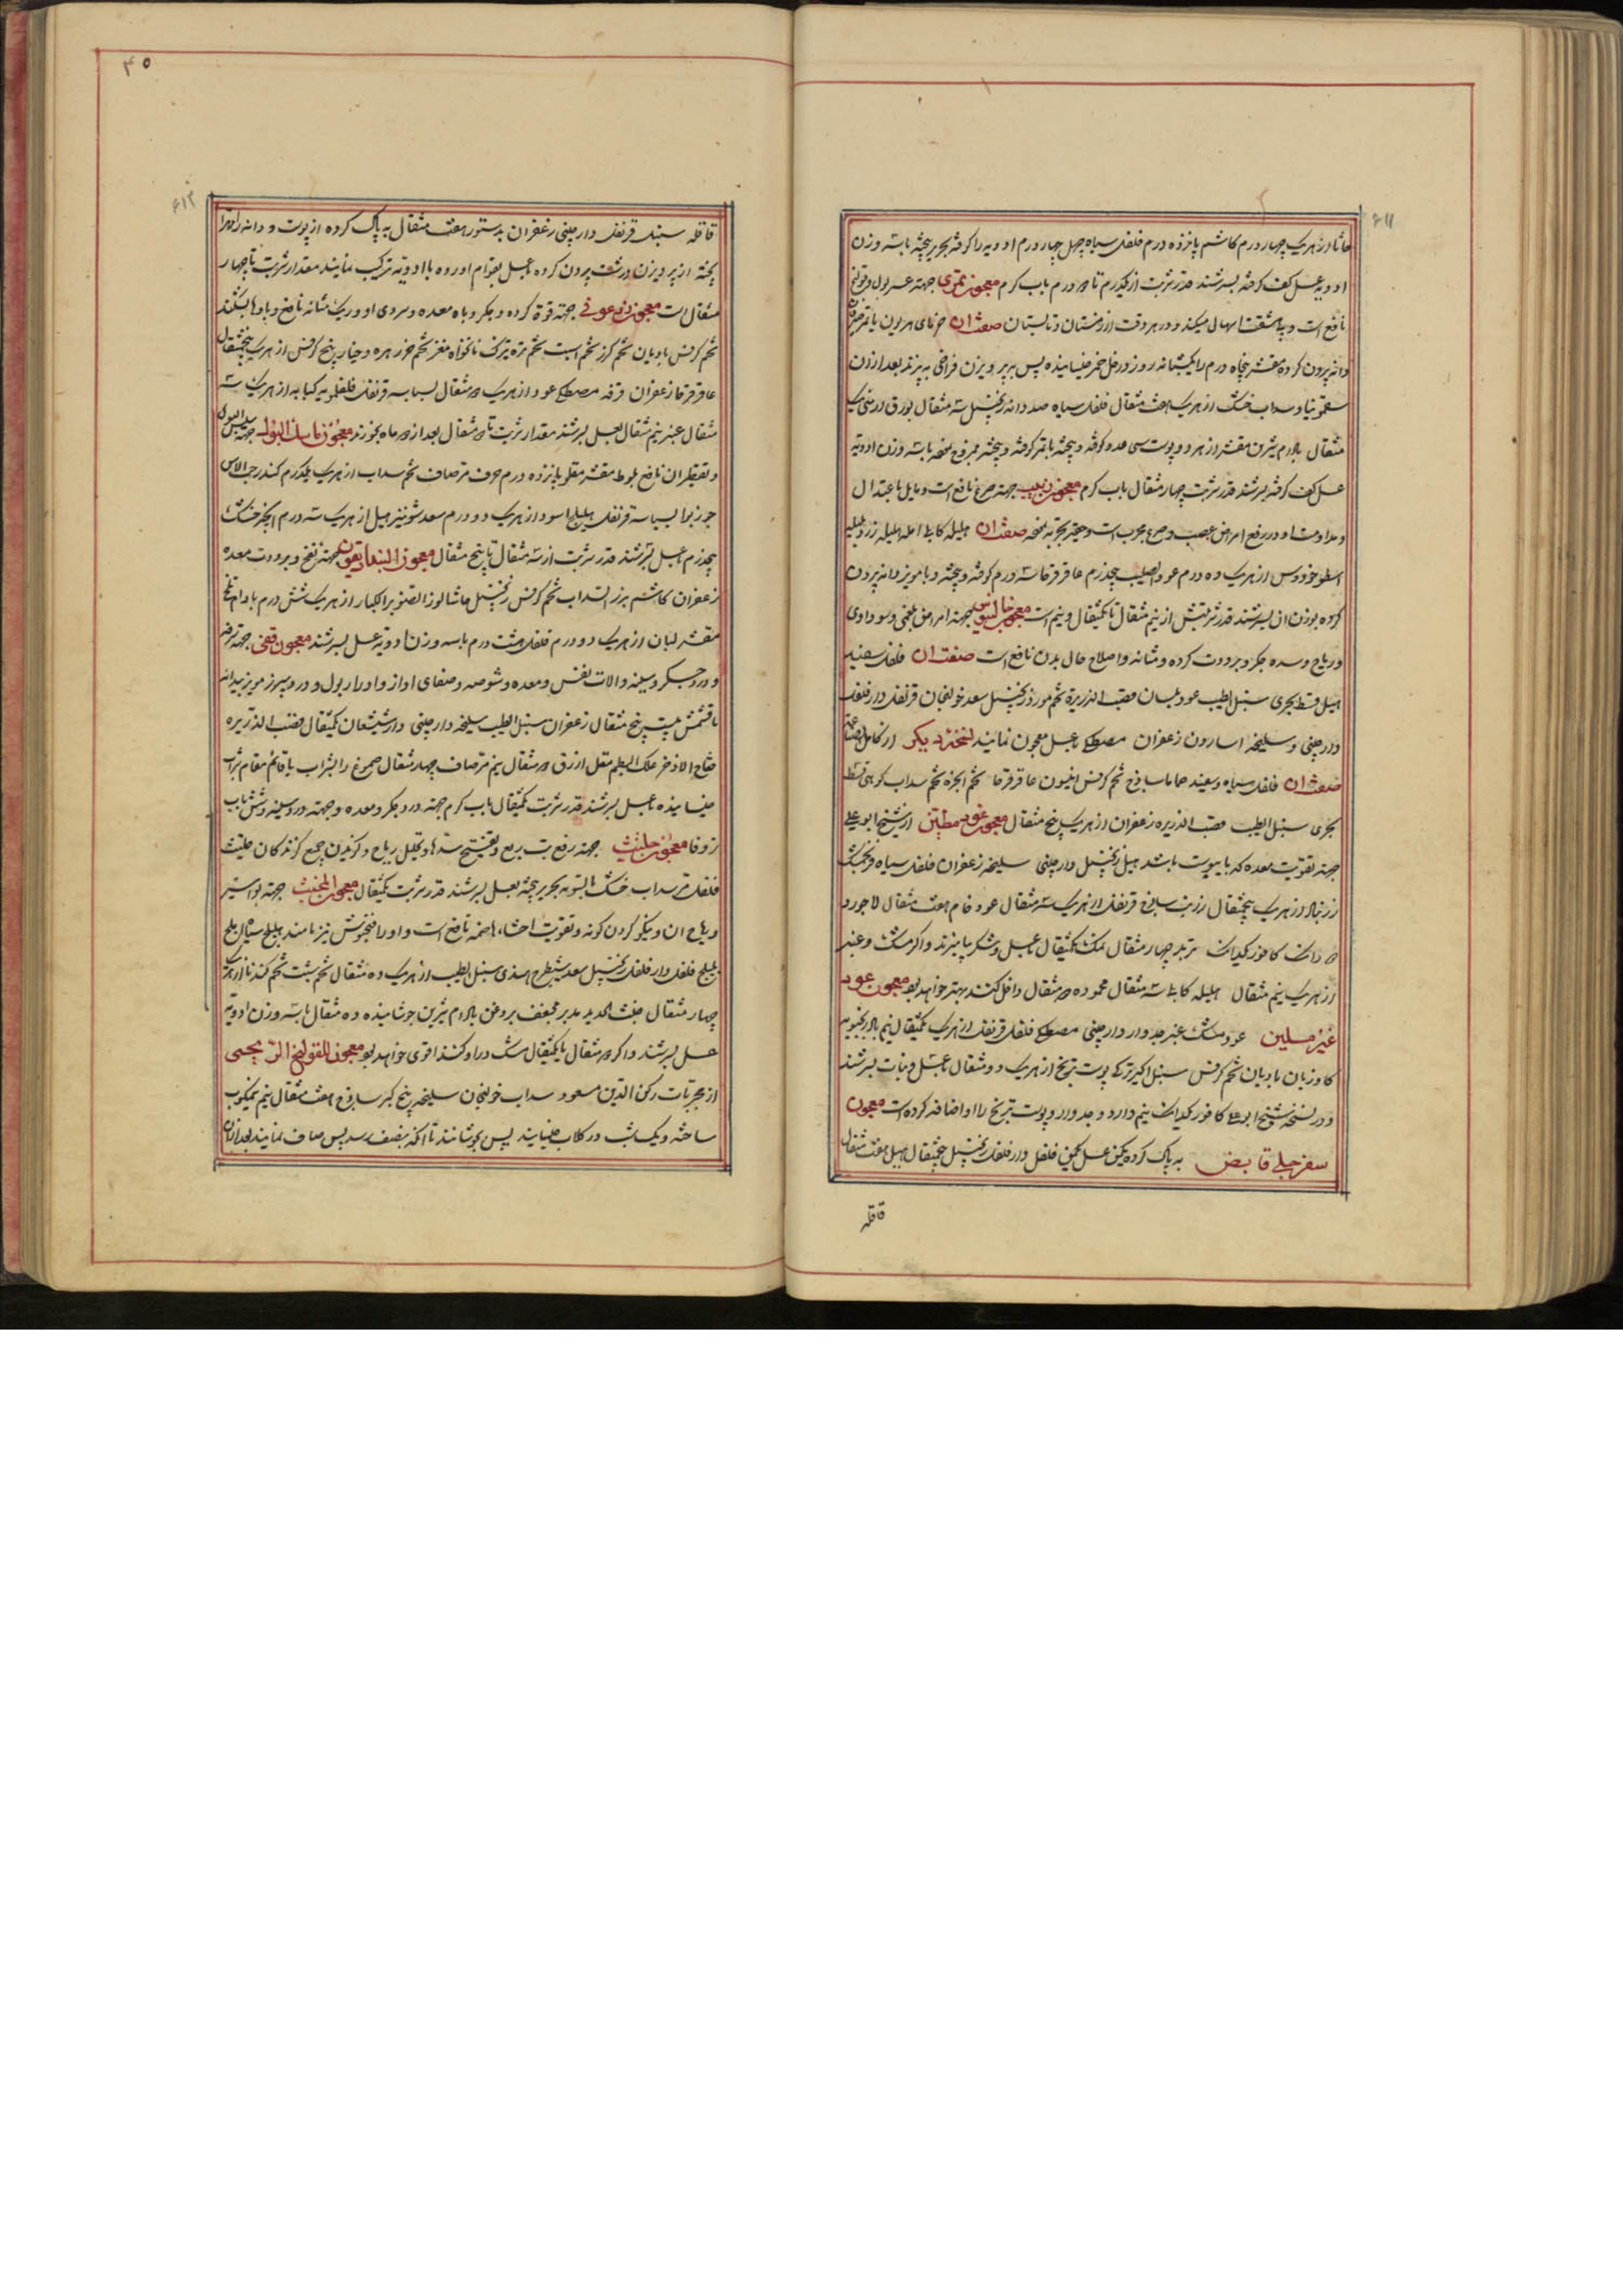 ۶۱۱
حاشا از هریک چهار درم کاشم پانزده درم فلفل سیاه چهل چهار درم ادویه را کوفته بحریر بیخته با سه وزن
ادویه عسل کف گرفته بسرشند قدر شربت از یکدرم تا دو درم باب گرم معجون تمری جهته عسر بول و قولنج
نافع است و بی مشقت اسهال میکند و در هر وقت از زمستان و تابستان صفت آن خرمای هیرون
دانه بیرون کرده پنجاه درم را یکشبانه روز در خل خمر خیسانیده پس بر پرویزن فراخی بریزند بعد از آن
سقمونیا و سداب خشک از هریک هفت مثقال فلفل سیاه صد دانه زنجبیل سه مثقال بورق ارمنی یک
مثقال بادام شیرین مقشر از هر دو پوست سی عدد کوفته و بیخته با تمر کوفته و بیخته ممزوج ساخته با سه وزن ادویه
عسل کف گرفته بسرشند قدر شربت چهار مثقال باب گرم معجون زبیب جهته صرع نافع است و مایل باعتدال
و مداومت او در رفع امراض عصب و صرع مجرب است و حقیر بتجربه صفت آن هلیله کابلی امله هلیله زرد بلیله
اسطوخودوس از هریک ده درم عود الصلیب پنجدرم عاقرقرحا سه درم کوفته و بیخته و با مویز دانه بیرون
کرده بوزن آن بسرشند قدر شربتش از نیم مثقال تا یکمثقال و نیم است معجون جالینوس جهته امراض بلغمی و سوداوی
و ریاح و سده جگر و برودت گرده و مثانه و اصلاح حال بدن نافع است صفت آن فلفل سفید
هیل قسط بحری سنبل الطیب عود بلسان قصب الذریره تخم مورد زنجبیل سعد خولنجان قرنفل دارفلفل
دارچینی و سلیخه اسارون زعفران مصطکی با عسل معجون نمایند نسخه دیگر از کامل الصناعه
صفت آن فلفل سیاه و سفید حماما ساذج تخم کرفس افیون عاقرقرحا تخم انجره تخم سداب کوهی قسط
بحری سنبل الطیب قصب الذریره زعفران از هریک پنج مثقال معجون عود مطیب از شیخ ابو علی
جهته تقویت معده که با یبوست باشد هیل زنجبیل دارچینی سلیخه زعفران فلفل سیاه فرنجمشک
زرنباد از هریک پنجمثقال رزین ساذج قرنفل از هریک سه مثقال عود خام هفت مثقال لاجورد
دو دانک کافور یکدانک تربد چهار مثقال نمک یکمثقال با عسل و شکر بیامیزند و اگر مشک و عنبر
از هریک نیم مثقال هلیله کابلی سه مثقال محموده دو مثقال داخل کنند بهتر خواهد بود معجون عود
غیر ملین عود مشک عنبر جدوار دارچینی مصطکی فلفل قرنفل از هریک یکمثقال نیم بادرنجبویه
گاوزبان بادیان تخم کرفس سنبل اکبر ترکی پوست ترنج از هریک دو مثقال با عسل و نبات بسرشند
و در نسخه شیخ ابو علی کافور یکدانک نیم دارد و جدوار و پوست ترنج را او اضافه کرده است معجون
سفرجلی قابض به پاک کرده یکمن عسل یکمن فلفل دارفلفل زنجبیل پنجمثقال هیل هفت مثقال
قاقله
۴۵
۶۱۲
قاقله سنبل قرنفل دارچینی زعفران بدستور هفت مثقال به پاک کرده از پوست و دانه را مهرا
پخته از پرویزن درشت بیرون کرده با عسل بقوام آورده با ادویه ترکیب نمایند مقدار شربت تا چهار
مثقال است معجون فرعونی جهته قوة گرده و جگر و باه معده و سردی او و ریک مثانه نافع و بادها بشکند
تخم کرفس بادیان تخم گزر تخم اسپست تخم تره تیزک نانخواه مغز تخم خربزه و خیار بیخ کرفس از هریک پنجمثقال
عاقرقرحا زعفران قرفه مصطکی عود از هریک دو مثقال بسباسه قرنفل فلفلمویه کبابه از هریک سه
مثقال عنبر نیم مثقال بعسل بسرشند مقدار شربت تا دو مثقال بعد از دو ماه بخورند معجون ماسک البول جهته سلس البول
و تقطیر آن نافع بلوط مقشر مقلو پانزده درم حرف مر صاف تخم سداب از هریک یکدرم کندر حب الاس
جوزبوا بسباسه قرنفل هلیله اسود از هریک دو درم سعد شونیز هیل از هریک سه درم انجیر خشک
پنجدرم بعسل بسرشند قدر شربت از سه مثقال تا پنج مثقال معجون البنداریقون جهته نفخ و برودت معده
زعفران کاشم بزر السداب تخم کرفس زنجبیل حاشا لوز الصنوبر الکبار از هریک شش درم بادام تلخ
مقشر لبان از هریک دو درم فلفل هشت درم با سه وزن ادویه عسل بسرشند معجون قفی جهته
و درد جگر و سینه و الات نفس و معده و شوصه و صفای آواز و ادرار بول و درد سپرز مویز بیدانه
یا کشمش بیست پنج مثقال زعفران سنبل الطیب سلیخه دارچینی دارشیشعان یکمثقال قصب الذریره
فقاح الاذخر علک البطم مقل ازرق دو مثقال نیم مر صاف چهار مثقال صموغ را بشراب یا قائم مقام شراب
خیسانیده با عسل بسرشند قدر شربت یکمثقال باب گرم جهته درد جگر و معده و جهته درد سینه و شش باب
زوفا معجون حلتیث جهته رفع تب ربع و تفتیح سدها و تحلیل ریاح و گزیدن جمیع گزندگان حلتیث
فلفل مر سداب خشک بالسویه بحریر بیخته بعسل بسرشند قدر شربت یکمثقال معجون الخبث جهته بواسیر
و ریاح آن و نیکو کردن گونه و تقویت احشا، هاضمه نافع است و او را فنجنوش نیز نامند هلیله سیاه املج
بلیلج فلفل دارفلفل زنجبیل سعد شیطرج هندی سنبل الطیب از هریک ده مثقال تخم شبت تخم گندنا از هریک
چهار مثقال خبث الحدید مدبر مجفف بروغن بادام شیرین جوشانیده ده مثقال با سه وزن ادویه
عسل بسرشند و اگر دو مثقال یا یکمثقال مشک در او کنند اقوی خواهد بود معجون القولنج الریحی
از مجربات رکن الدین مسعود سداب خولنجان سلیخه بیخ کبر ساذج هفت مثقال نیم نیمکوب
ساخته و یک شب در گلاب خیسانیده پس بجوشانند تا آنکه بنصف رسد پس صاف نمایند بعد از آن